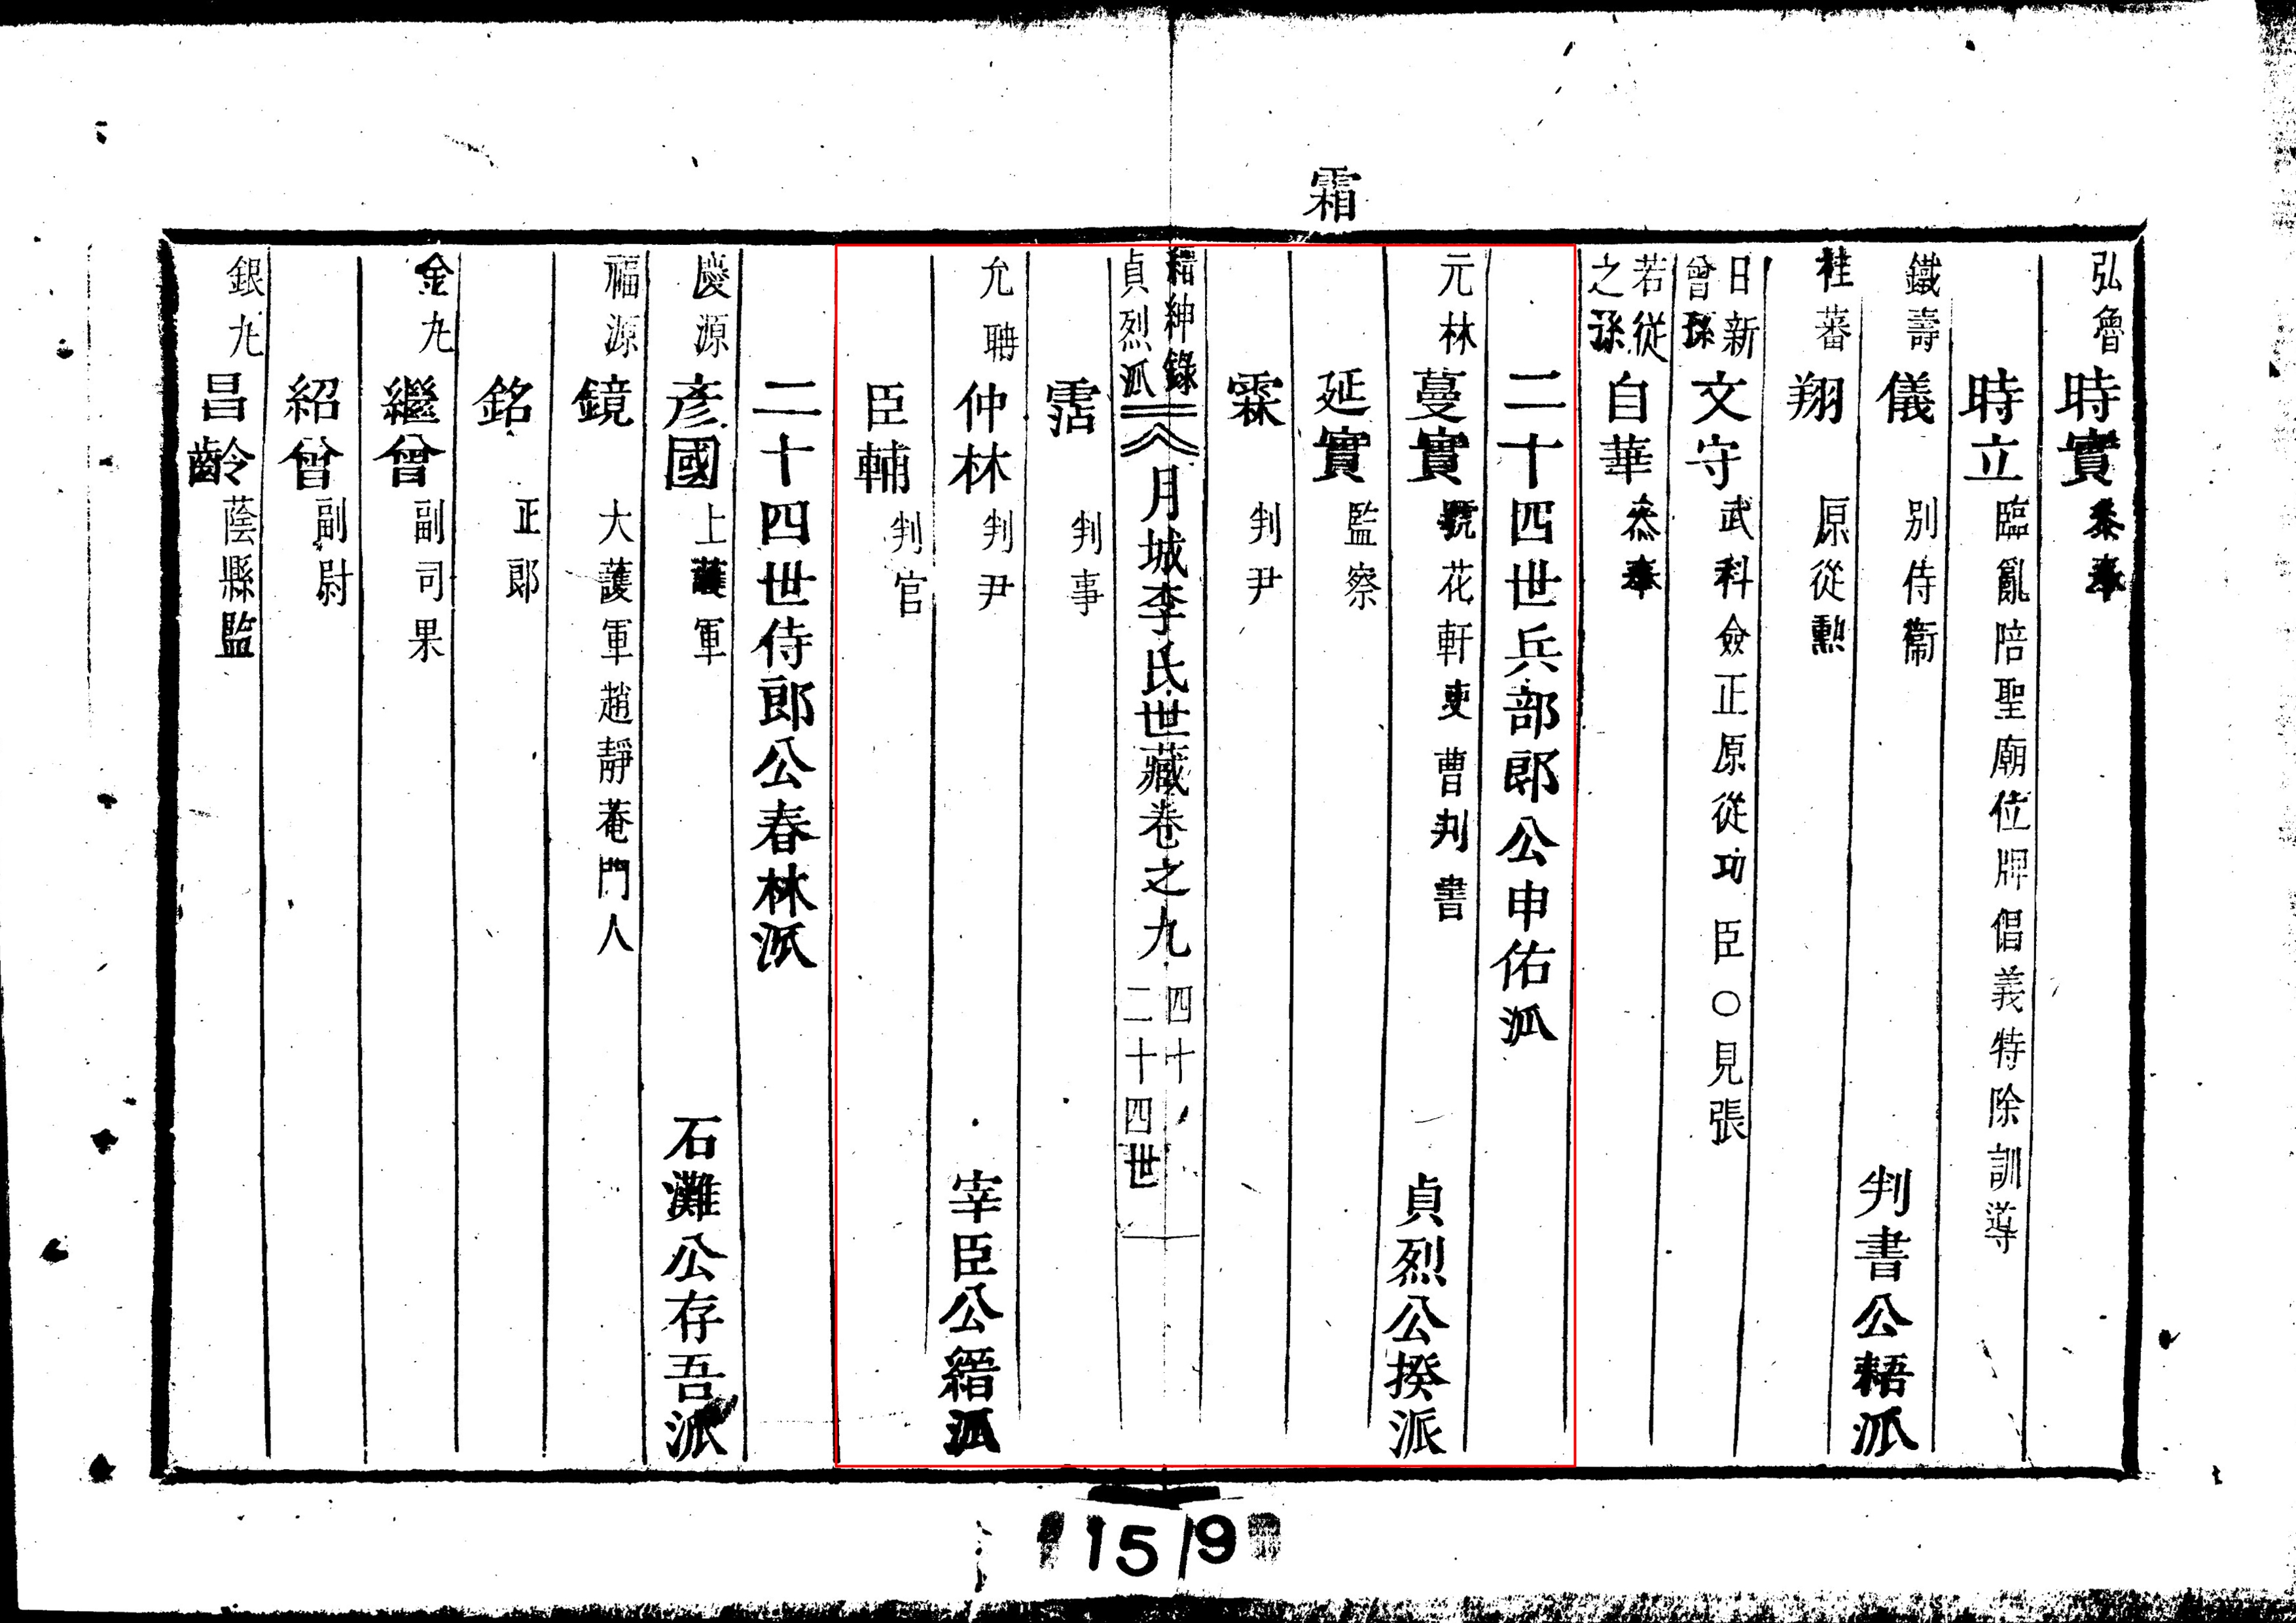 霜
弘魯 時實 叅奉
時立 臨亂陪聖廟位牌倡義特除訓導
鐵壽 儀 別侍衞 判書公𦓊派
桂蕃 翔 原從勲
日新曾孫 文守 武科僉正原從功臣○見張
若從之孫 自華 叅奉
二十四世兵部郎公申佑派
元林 蔓實 號花軒吏曹判書 貞烈公揆派
延實 監察
霖 判尹
縉紳錄 貞烈派 月城李氏世蔵卷之九 四十 二十四世
霑 判事
允聃 仲林 判尹 宰臣公縉派
臣輔 判官
二十四世侍郎公春林派
慶源 彥國 上護軍 石灘公存吾派
福源 鏡 大護軍趙靜菴門人
銘 正郎
金九 繼曾 副司果
紹曾 副尉
銀九 昌齡 蔭縣監
15/9